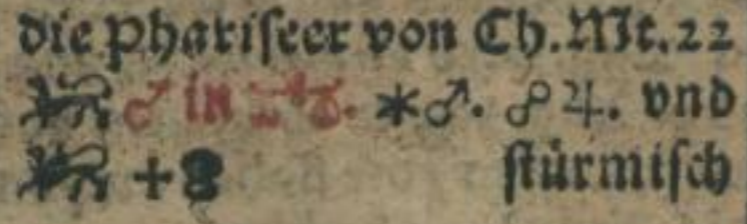 die Phariseer von Ch. Mt. 22
♌ ♂ in ♐. ⚹♂. ☍♃. vnd
♌ + 8 stürmisch